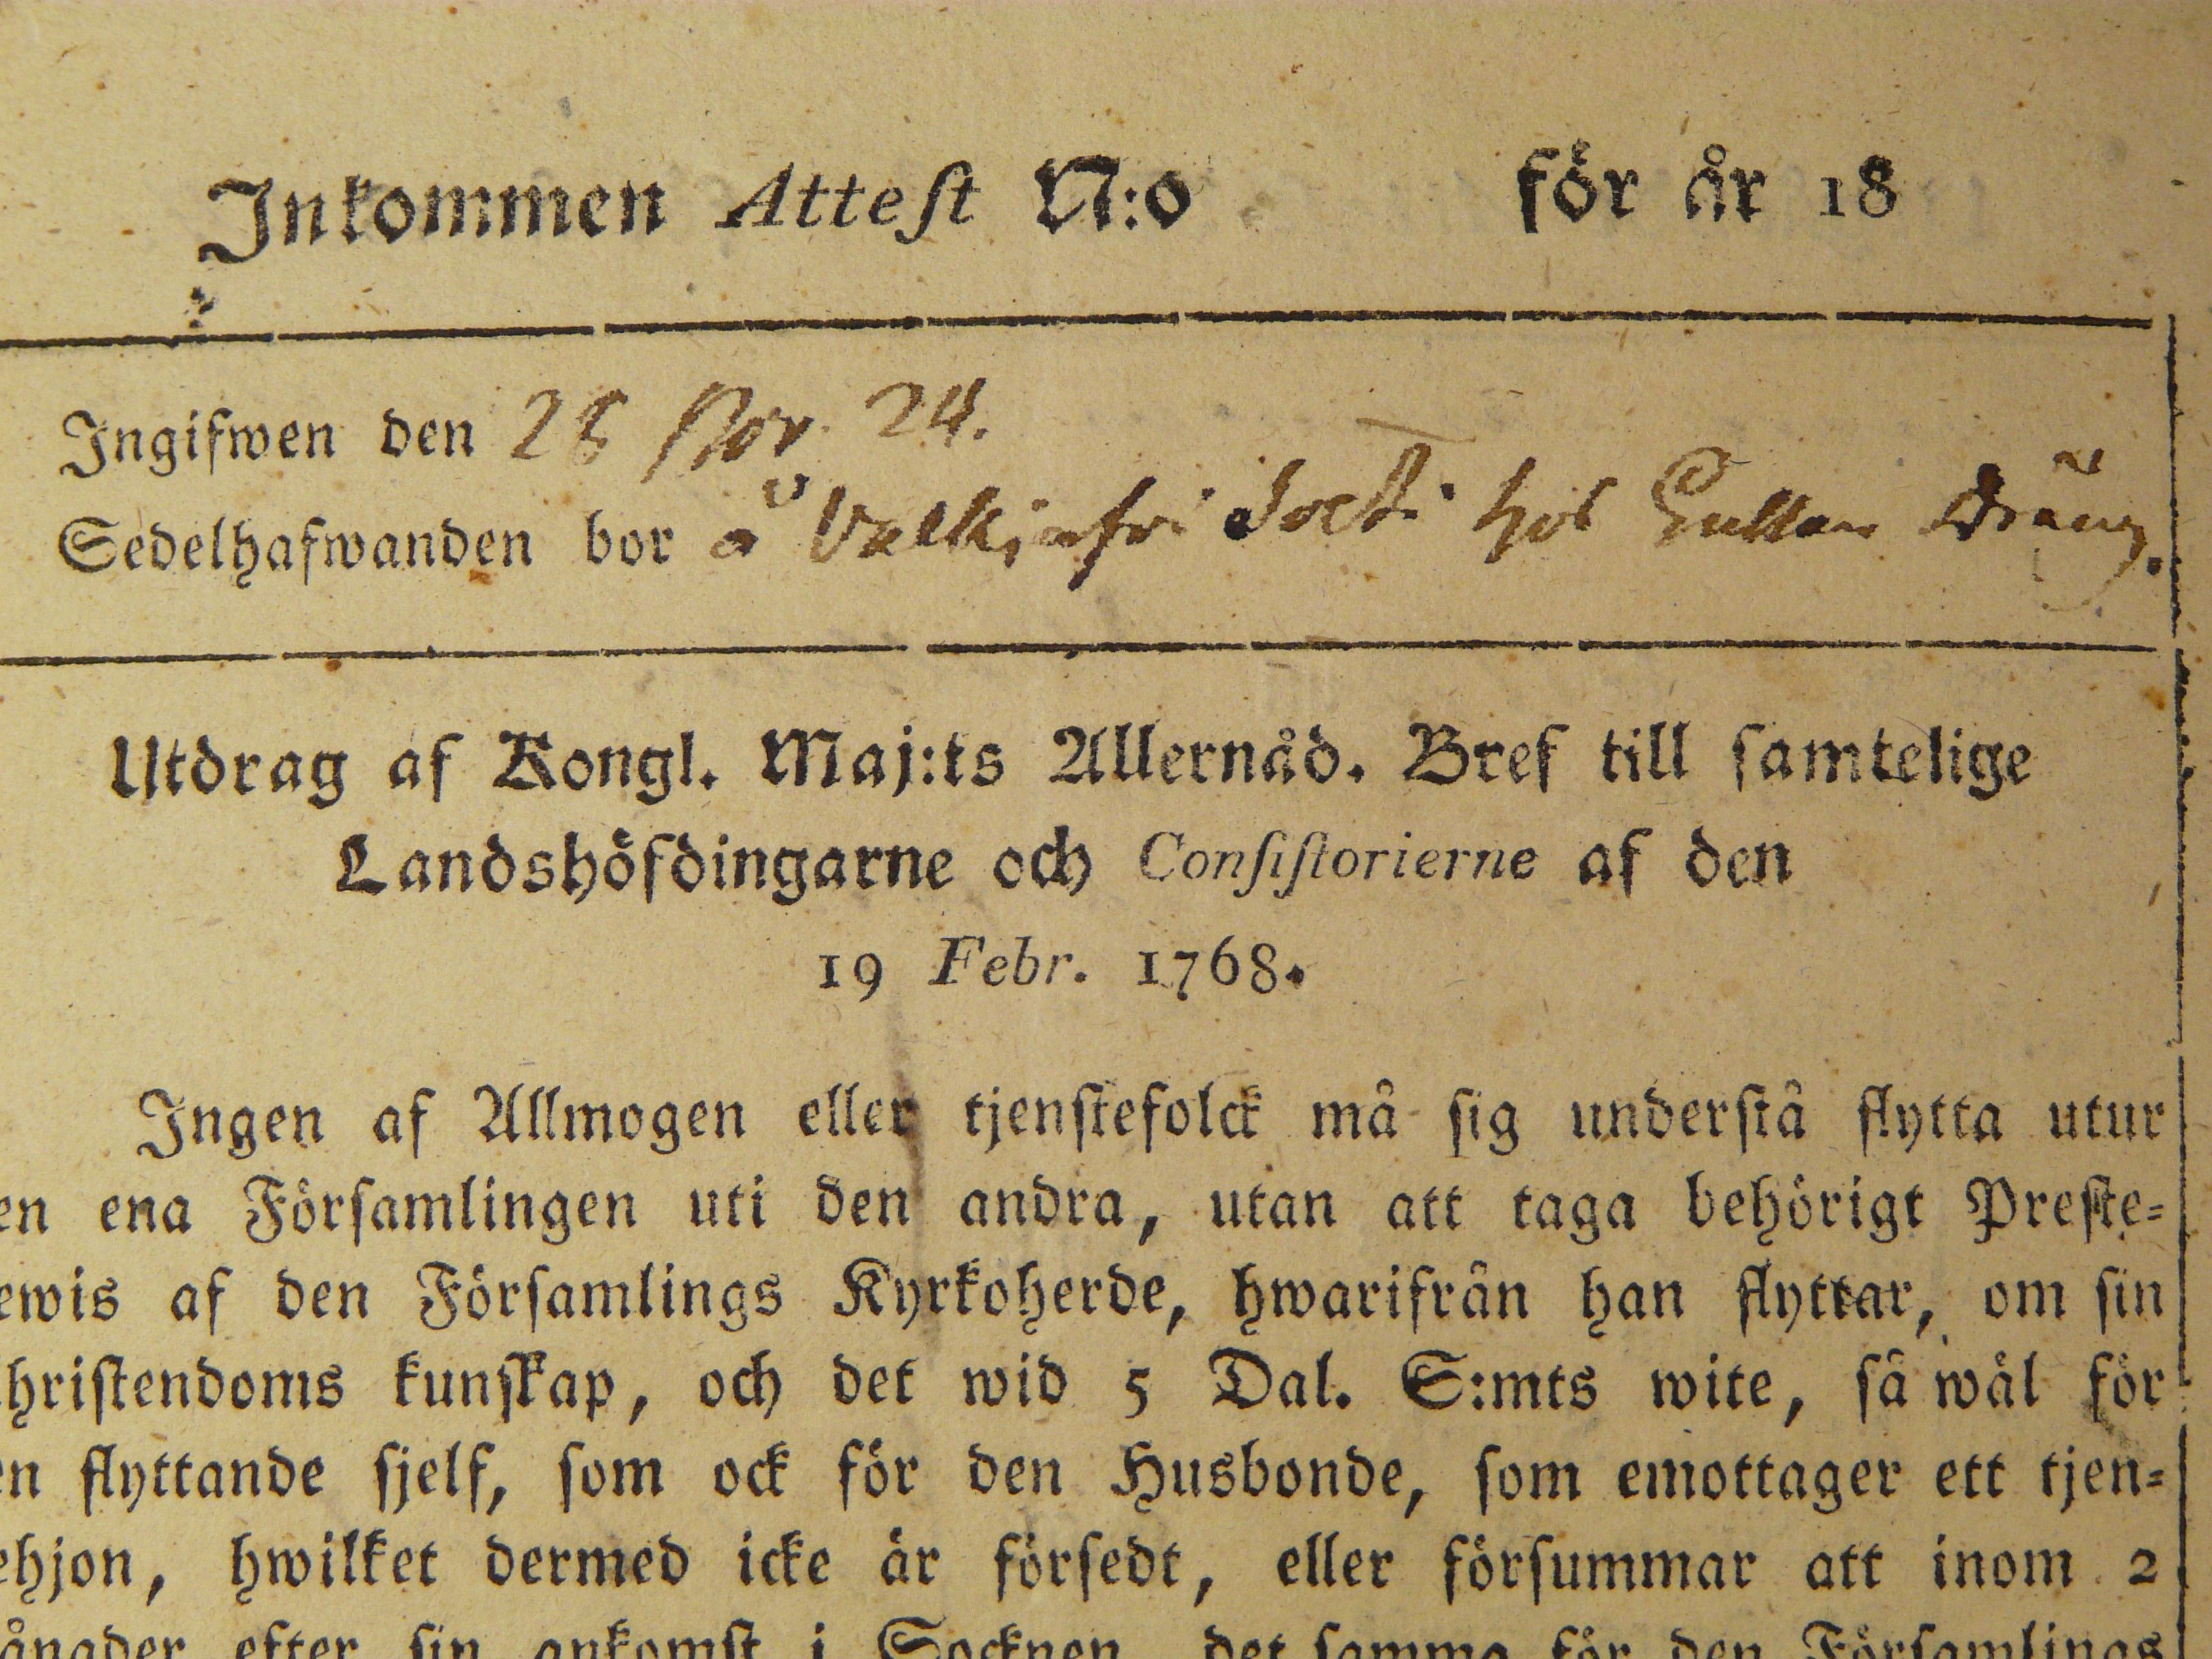 Inkommen Attest N:o för år 18
Ingifwen den 28 Nov. 24.
Sedelhafwanden bor å hos dräng.
Utdrag af Kongl. Maj:ts Allernåd. Bref till samtelige
Landshöfdingarne och Consistorierne af den
19 Febr. 1768.
Ingen af Allmogen eller tjenstefolck må sig understå flytta utur
en ena Församlingen uti den andra, utan att taga behörigt Preste-
ewis af den Församlings Kyrkoherde, hwarifrån han flyttar, om sin
hristendoms kunskap, och det wid 5 Dal. S:mts wite, så wäl för
n flyttande sjelf, som ock för den Husbonde, som emottager ett tjen-
ehjon, hwilket dermed icke är försedt, eller försummar att inom 2
ånader efter sin ankomst i Socknen det samma för den Församlings